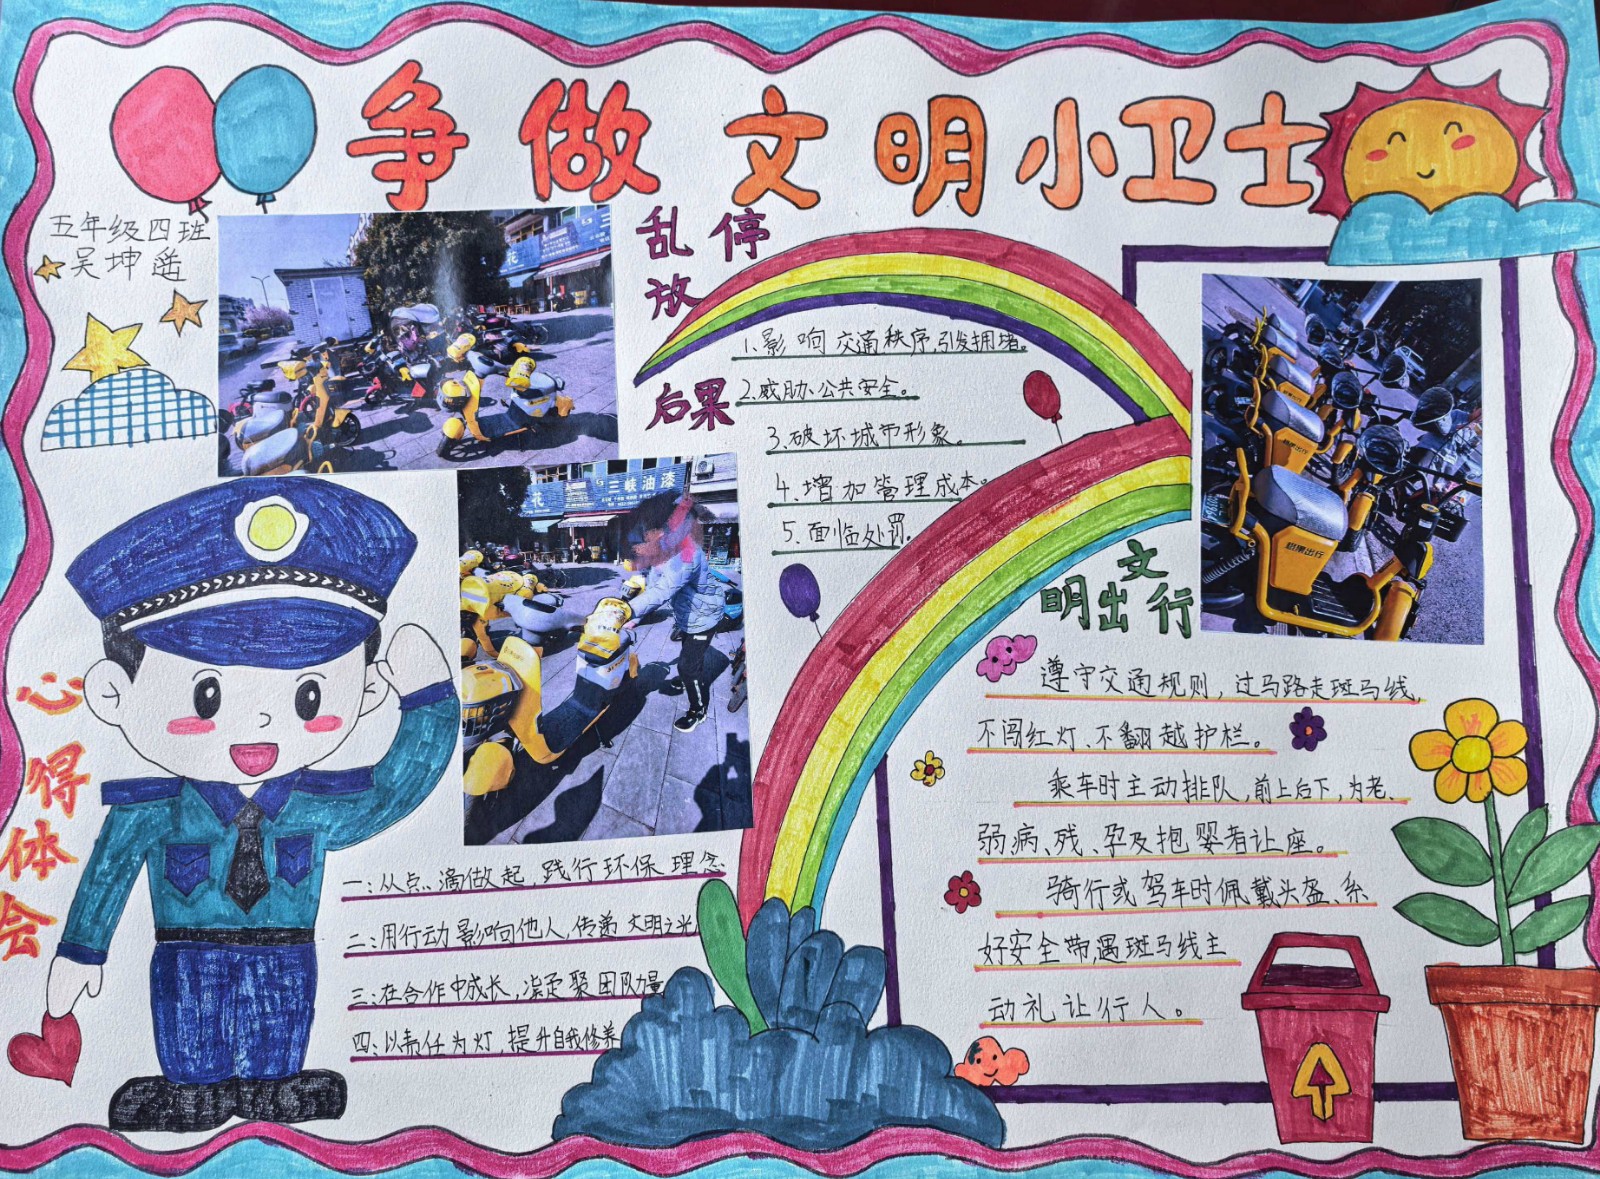 争做文明小卫士
五年级四班
吴坤遥
乱停
放
后果
1.影响交通秩序,引发拥堵。
2.威胁公共安全。
3.破坏城市形象。
4.增加管理成本。
5.面临处罚。
花
花
三峡油漆
松果出行
文
明出行
遵守交通规则,过马路走斑马线,
不闯红灯、不翻越护栏。
乘车时主动排队,前上后下,为老、
弱病、残、孕及抱婴者让座。
骑行或驾车时佩戴头盔、系
好安全带,遇斑马线主
动礼让行人。
心得体会
一:从点滴做起,践行环保理念
二:用行动影响他人,传递文明之光
三:在合作中成长,凝聚团队力量
四:以责任为灯,提升自我修养